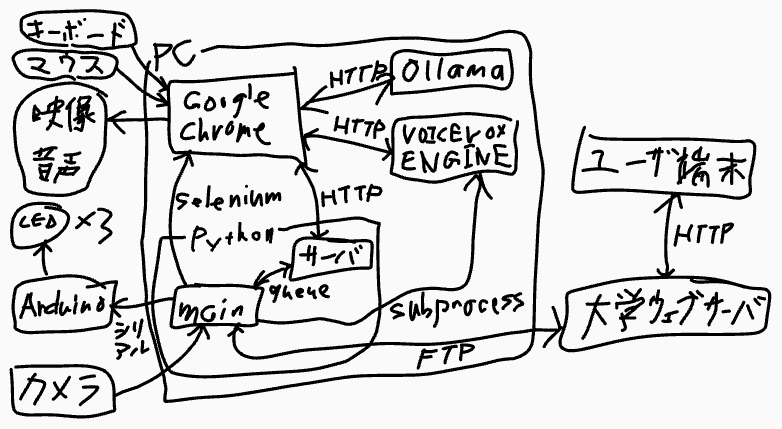 キーボード
マウス
映像
音声
LED ×3
Arduino
シリ
アル
カメラ
PC
Google
Chrome
HTTP
Ollama
HTTP
VOICEVOX
ENGINE
selenium
HTTP
Python
サーバ
queue
main
subprocess
FTP
ユーザ端末
HTTP
大学ウェブサーバ